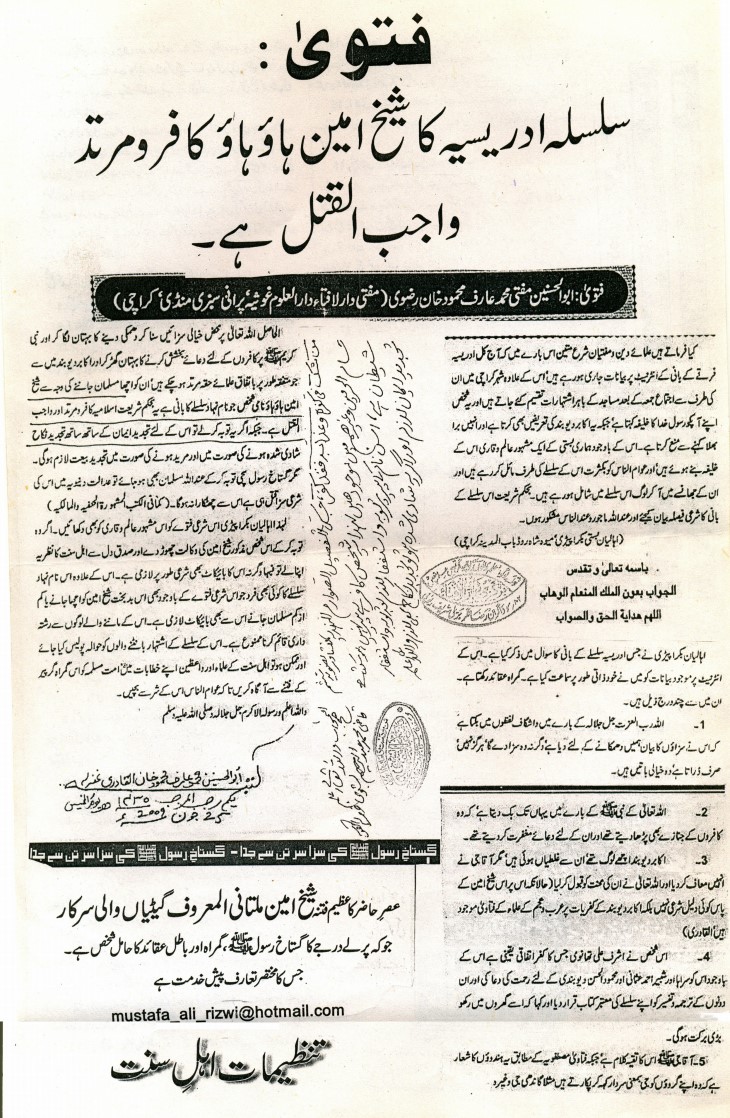 فتویٰ :
سلسلہ ادریسیہ کا شیخ امین ہاؤ ہاؤ کافر و مرتد
واجب القتل ہے۔
فتویٰ: ابوالحسنین مفتی محمد عارف محمود خان رضوی (مفتی دارالافتاء دارالعلوم غوثیہ پرانی سبزی منڈی، کراچی)
کیا فرماتے ہیں علمائے دین و مفتیان شرع متین اس بارے میں کہ آج کل ادریسیہ
فرقے کے بانی کے انٹرنیٹ پر بیانات جاری ہو رہے ہیں اس کے علاوہ شہر کراچی میں ان
کی طرف سے اجتماع جمعہ کے بعد مساجد کے باہر اشتہارات تقسیم کئے جاتے ہیں اور یہ شخص
اپنے آپکو رسول خدا کا خلیفہ کہتا ہے جبکہ یہ اکابر دیوبند کی تعریفیں بھی کرتا ہے اور انہیں برا
بھلا کہنے سے منع کرتا ہے۔ اس کے باوجود ہماری بستی کے ایک مشہور عالم و قاری اس کے
خلیفہ بنے ہوئے ہیں اور عوام الناس کو بکثرت اس کے سلسلے کی طرف مائل کر رہے ہیں اور
ان کے جھانسے میں آکر لوگ اس سلسلے میں شامل ہو رہے ہیں۔ بحکم شریعت اس سلسلے کے
بانی کا شرعی فیصلہ بیان کیجئے اور عنداللہ ماجور و عندالناس مشکور ہوں۔
(اہالیان بستی بکرا پیڑی، میوہ شاہ روڈ باب المدینہ کراچی)
باسمہ تعالیٰ و تقدس
الجواب بعون الملک المنعام الوہاب
اللہم ہدایۃ الحق والصواب
اہالیان بکرا پیڑی نے جس ادریسیہ سلسلے کے بانی کا سوال میں ذکر کیا ہے۔ اس کے
انٹرنیٹ پر موجود بیانات کو میں نے خود ذاتی طور پر سماعت کیا ہے۔ گمراہ عقائد رکھتا ہے۔
ان میں سے چند درج ذیل ہیں۔
1۔ اللہ رب العزت جل جلالہ کے بارے میں واشگاف لفظوں میں بکتا ہے
کہ اس نے سزاؤں کا بیان ہمیں دھمکانے کے لئے دیا ہے وگرنہ وہ سزا دے گا ہرگز نہیں
صرف ڈراتا ہے وہ خیالی باتیں ہیں۔
2۔ اللہ تعالیٰ کے نبی ﷺ کے بارے میں یہاں تک بک دیتا ہے کہ وہ
کافروں کے جنازے بھی پڑھا دیتے تھے اور ان کے لئے دعائے مغفرت کر دیتے تھے۔
3۔ اکابر دیوبند اچھے لوگ تھے ان سے غلطیاں ہوئی ہیں مگر آقا جی نے
انہیں معاف کر دیا اور اللہ تعالیٰ نے ان کی محنت کو قبول کر لیا (حالانکہ اس پر اس شیخ امین کے
پاس کوئی دلیل شرعی نہیں بلکہ اکابر دیوبند کے کفریات پر عرب و عجم کے علماء کے فتاویٰ موجود
ہیں القادری)
4۔ اس شخص نے اشرف علی تھانوی جس کا کفر اتفاقی یقینی ہے اس کے
باوجود اس کو سراہا اور شبیر احمد عثمانی اور محمود الحسن دیوبندی کے لئے رحمت کی دعا کی اور ان
دونوں کے ترجمہ و تفسیر کو اپنے سلسلے کی معتبر کتاب قرار دیا اور کہا کہ اسے گھروں میں رکھو
بڑی برکت ہوگی۔
5۔ آقا جی ﷺ اس کا تکیہ کلام ہے جبکہ فتاویٰ مصطفویہ کے مطابق یہ ہندوؤں کا شعار
ہے کہ وہ اپنے گروؤں کو جی بمعنی سردار کہہ کر پکارتے ہیں مثلا گاندھی جی وغیرہ
الحاصل اللہ تعالیٰ پر محض خیالی سزائیں سنا کر دھمکی دینے کا بہتان لگا کر اور نبی
کریم ﷺ پر کافروں کے لئے دعائے بخشش کرنے کا بہتان گھڑ کر اور اکابر دیوبند میں سے
جو متفقہ طور پر باتفاق علمائے حقہ مرتد ہو چکے ہیں ان کو اچھا مسلمان جاننے کی وجہ سے شیخ
امین ہاؤ ہاؤ نامی شخص جو نام نہاد سلسلے کا بانی ہے یہ بحکم شریعت اسلامیہ کافر مرتد اور واجب
القتل ہے۔ جبکہ اگر یہ توبہ کر لے تو اس کے لئے تجدید ایمان کے ساتھ ساتھ تجدید نکاح
شادی شدہ ہونے کی صورت میں اور مرید ہونے کی صورت میں تجدید بیعت لازم ہوگی۔
مگر گستاخ رسول سچی توبہ کر کے عنداللہ مسلمان بھی ہو جائے تو عدالت دنیویہ میں اس کی
شرعی سزا قتل ہی ہے اس سے چھٹکارا نہ ہوگا۔ (کمافی الکتب المشہورۃ الحنفیہ والمالکیہ)
لہٰذا اہالیان بکرا پیڑی اس شرعی فتوے کو اس مشہور عالم و قاری کو بھی دکھائیں۔ اگر وہ
توبہ کر کے اس شخص مذکور شیخ امین کی وکالت چھوڑ دے اور صدق دل سے اہل سنت کا نظریہ
اپنا لے تو فبہا وگرنہ اس کا بائیکاٹ بھی شرعی طور پر لازمی ہے۔ اس کے علاوہ اس نام نہاد
سلسلے کا کوئی بھی فرد جو اس شرعی فتوے کے باوجود بھی اس بدبخت شیخ امین کو اچھا جانے یا کم
از کم مسلمان جانے اس سے بھی بائیکاٹ لازمی ہے۔ اس کے ماننے والے لوگوں سے رشتہ
داری قائم کرنا ممنوع ہے۔ اس کے سلسلے کے اشتہار بانٹنے والوں کو حوالہ پولیس کیا جائے
اور ممکن ہو تو اہل سنت کے علماء اور واعظین اپنے خطابات میں امت مسلمہ کو اس گمراہ گر پیر
کے فتنے سے آگاہ کریں تاکہ عوام الناس اس کے شر سے بچیں۔
واللہ اعلم و رسولہ الاکرم جل جلالہ و صلی اللہ علیہ وسلم
ابوالحسنین محمد عارف محمود خان القادری
یکم رجب المرجب ۱۴۳۰ھ یوم الخمیس
25 جون 2009ء
گستاخ رسول ﷺ کی سزا سر تن سے جدا - گستاخ رسول ﷺ کی سزا سر تن سے جدا
عصر حاضر کا عظیم فتنہ شیخ امین ملتانی المعروف گیٹیاں والی سرکار
جو کہ پرلے درجے کا گستاخ رسول ﷺ، گمراہ اور باطل عقائد کا حامل شخص ہے۔
جس کا مختصر تعارف پیش خدمت ہے
mustafa_ali_rizwi@hotmail.com
تنظیمات اہل سنت